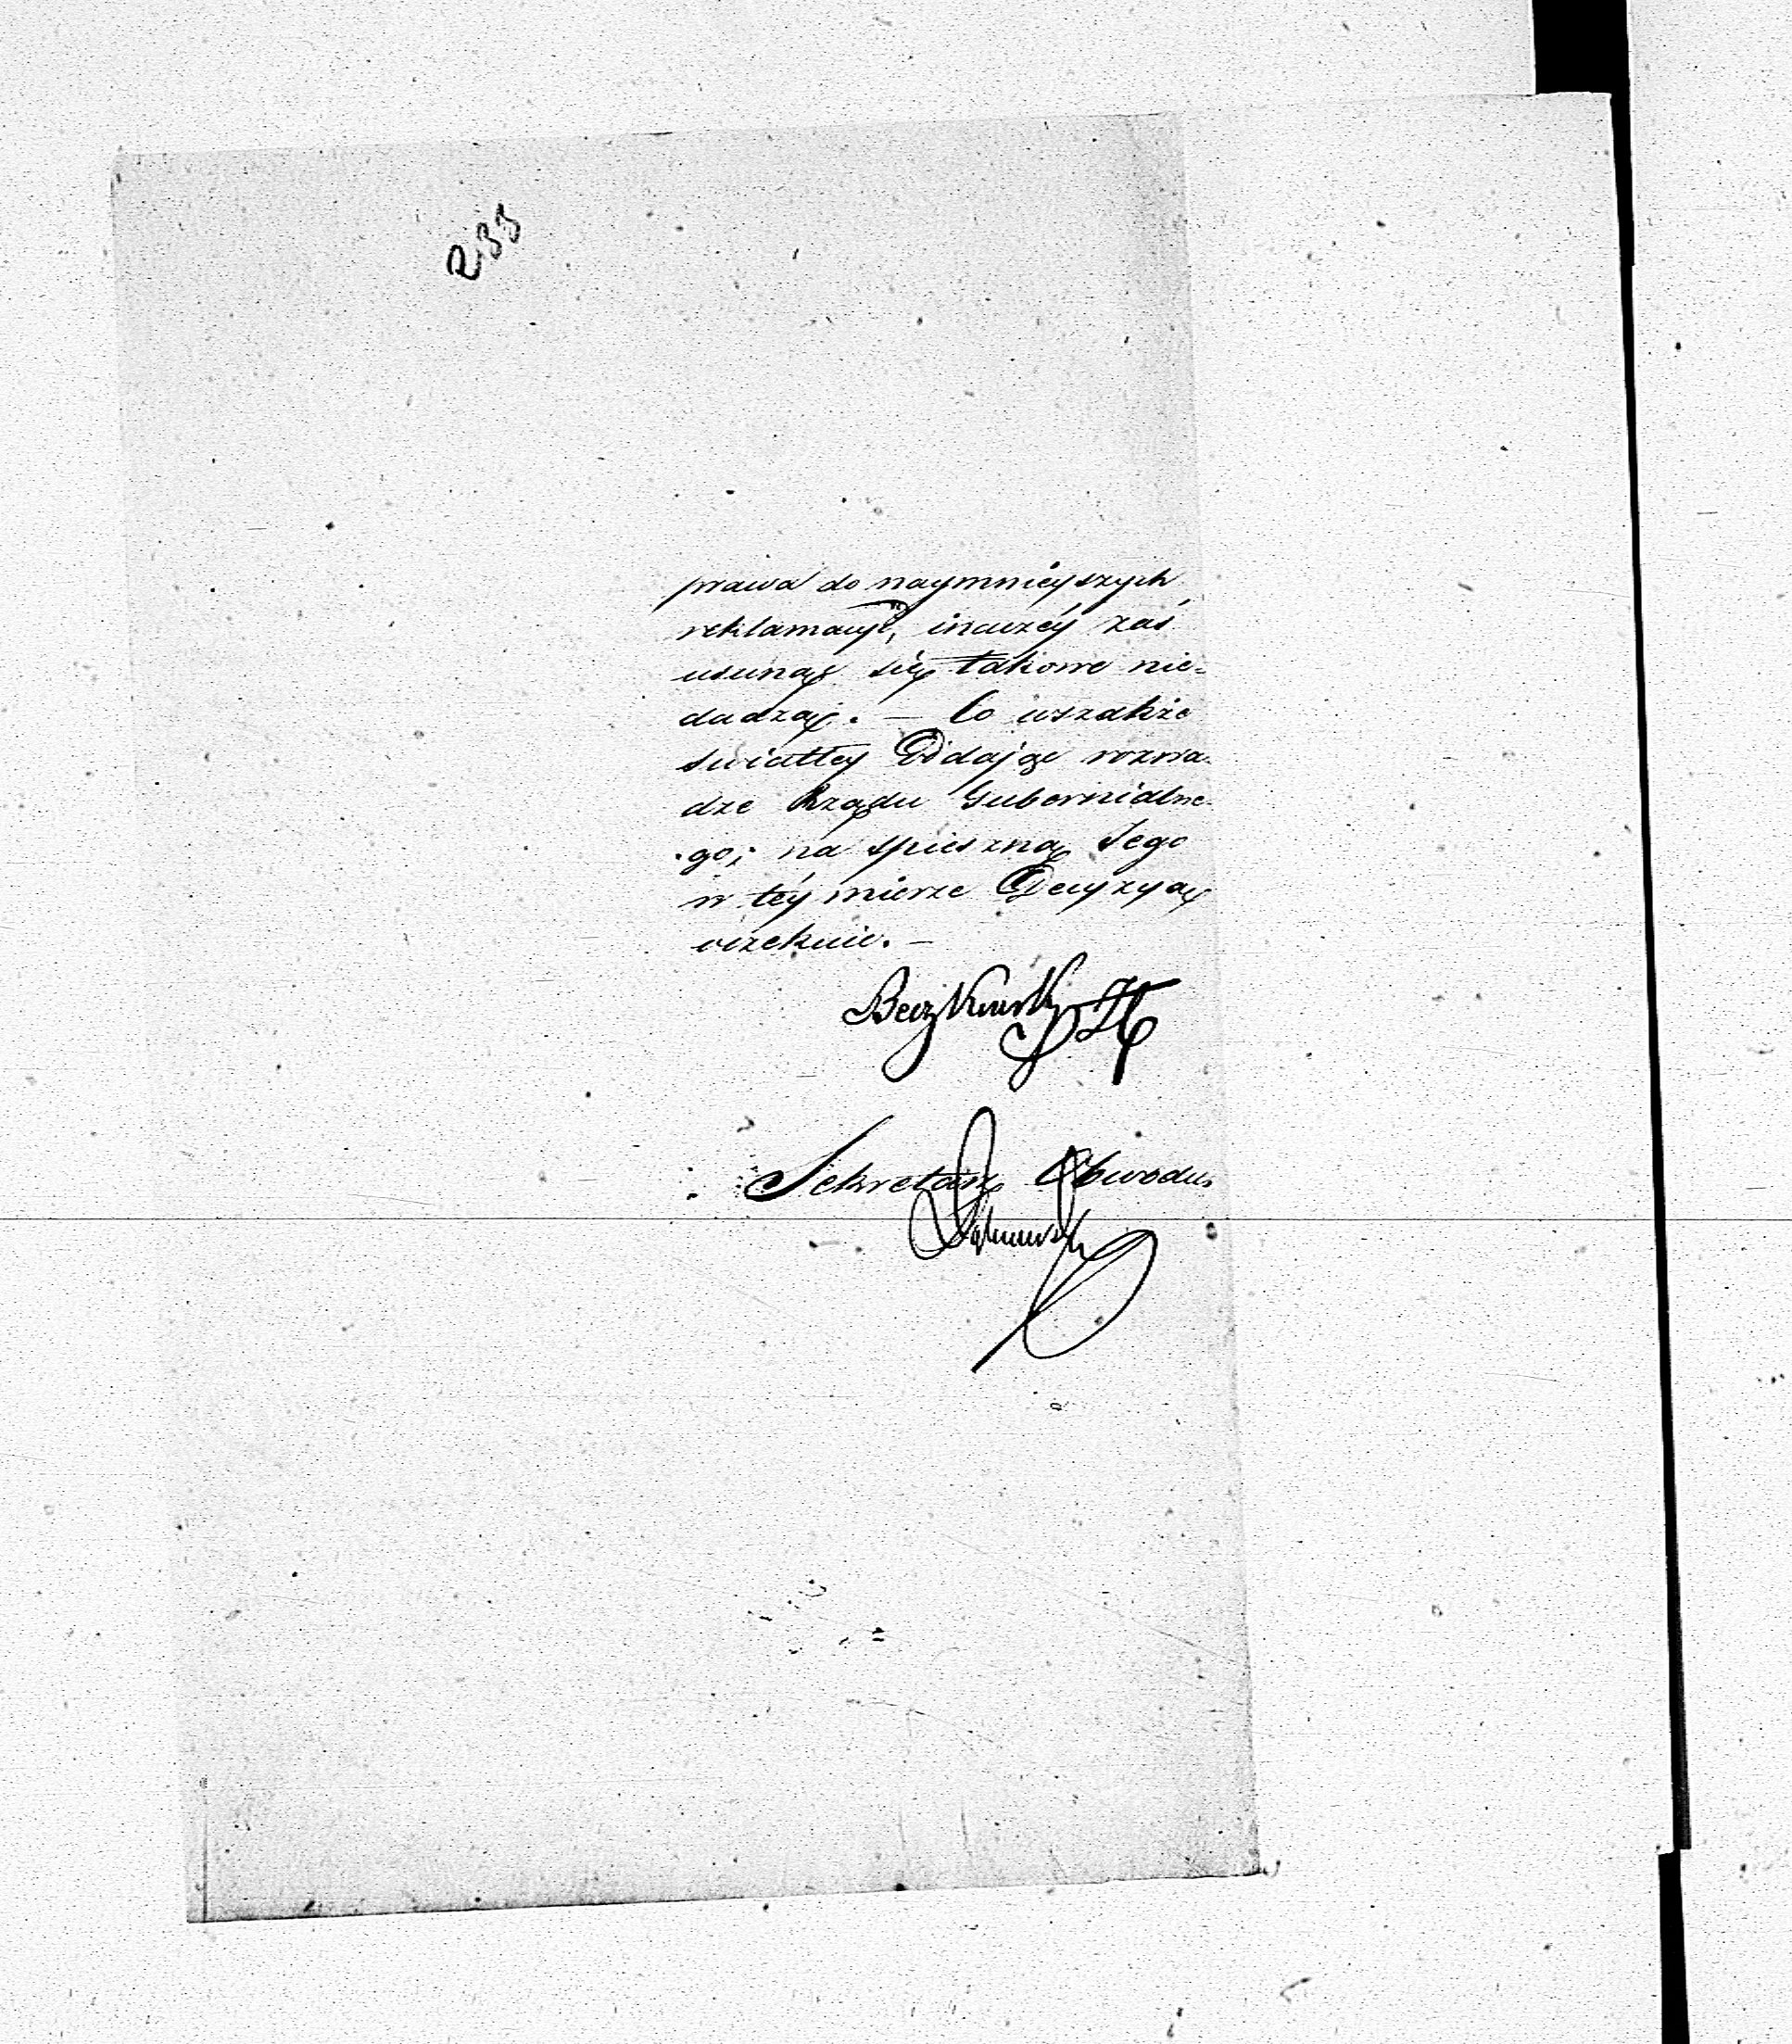 233
prawa do naymnieyszych
reklamacyi, inaczéy zaś
usunąć się takowe nie-
dadzą. — Co wszakże
swiatłey Oddając rozwa-
dze Rządu Gubernialne-
go; na spieszną Jego
w téy mierze Decyzyą
oczekuie. —
Sekretarz Obwodu